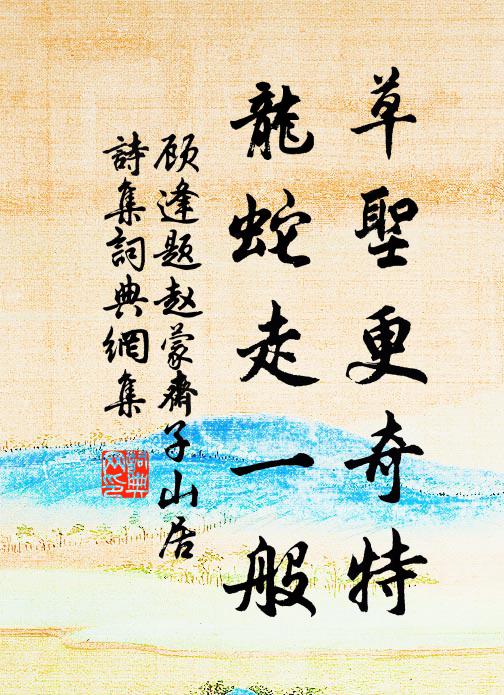 草聖更奇特
龍蛇走一般
顾逢题赵蒙齋子山居
詩集詞典網集